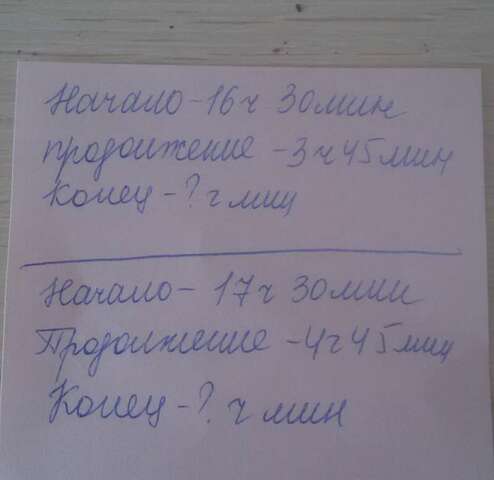 Начало - 16 ч 30 мин
продолжение - 3 ч 45 мин
Конец - ? ч мин
Начало - 17 ч 30 мин
Продолжение - 4 ч 45 мин
Конец - ? ч мин